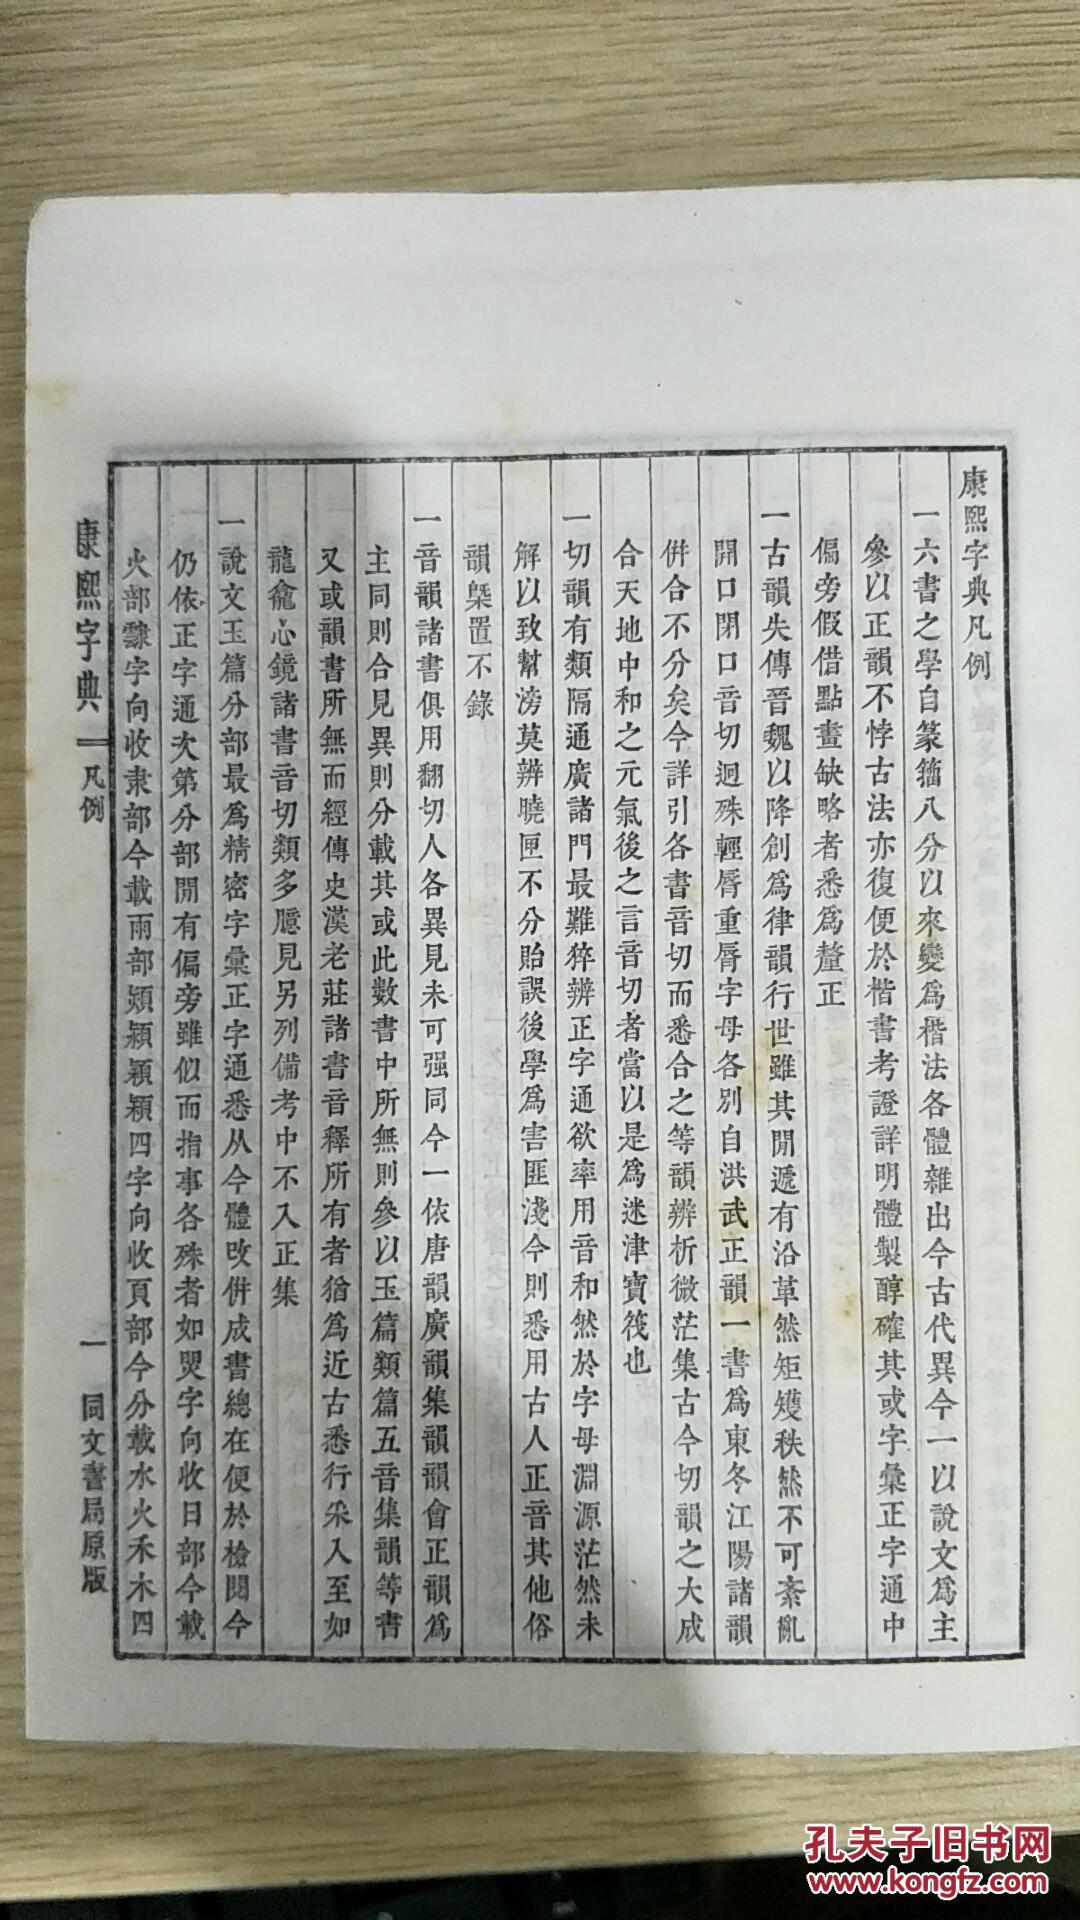 康熙字典凡例
一六書之學自篆籀八分以來變爲楷法各體雜出今古代異今一以說文爲主
參以正韻不悖古法亦復便於楷書考證詳明體製醇確其或字彙正字通中
偏旁假借點畫缺略者悉爲釐正
一古韻失傳晉魏以降創爲律韻行世雖其閒遞有沿革然矩矱秩然不可紊亂
開口閉口音切迥殊輕脣重脣字母各別自洪武正韻一書爲東冬江陽諸韻
倂合不分矣今詳引各書音切而悉合之等韻辨析微茫集古今切韻之大成
合天地中和之元氣後之言音切者當以是爲迷津寶筏也
一切韻有類隔通廣諸門最難猝辨正字通欲率用音和然於字母淵源茫然未
解以致幫滂莫辨曉匣不分貽誤後學爲害匪淺今則悉用古人正音其他俗
韻槩置不錄
一音韻諸書俱用翻切人各異見未可强同今一依唐韻廣韻集韻韻會正韻爲
主同則合見異則分載其或此數書中所無則參以玉篇類篇五音集韻等書
又或韻書所無而經傳史漢老莊諸書音釋所有者猶爲近古悉行采入至如
龍龕心鏡諸書音切類多臆見另列備考中不入正集
一說文玉篇分部最爲精密字彙正字通悉从今體改倂成書總在便於檢閱今
仍依正字通次第分部閒有偏旁雖似而指事各殊者如煛字向收日部今載
火部隸字向收隶部今載雨部潁熲穎穎四字向收頁部今分載水火禾木四
康熙字典 凡例 一 同文書局原版
孔夫子旧书网
www.kongfz.com